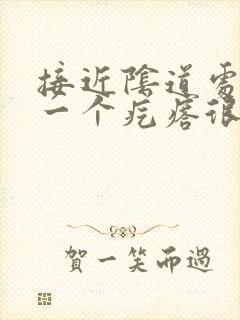 接近陰道處
一个疙瘩很
賀一笑而過